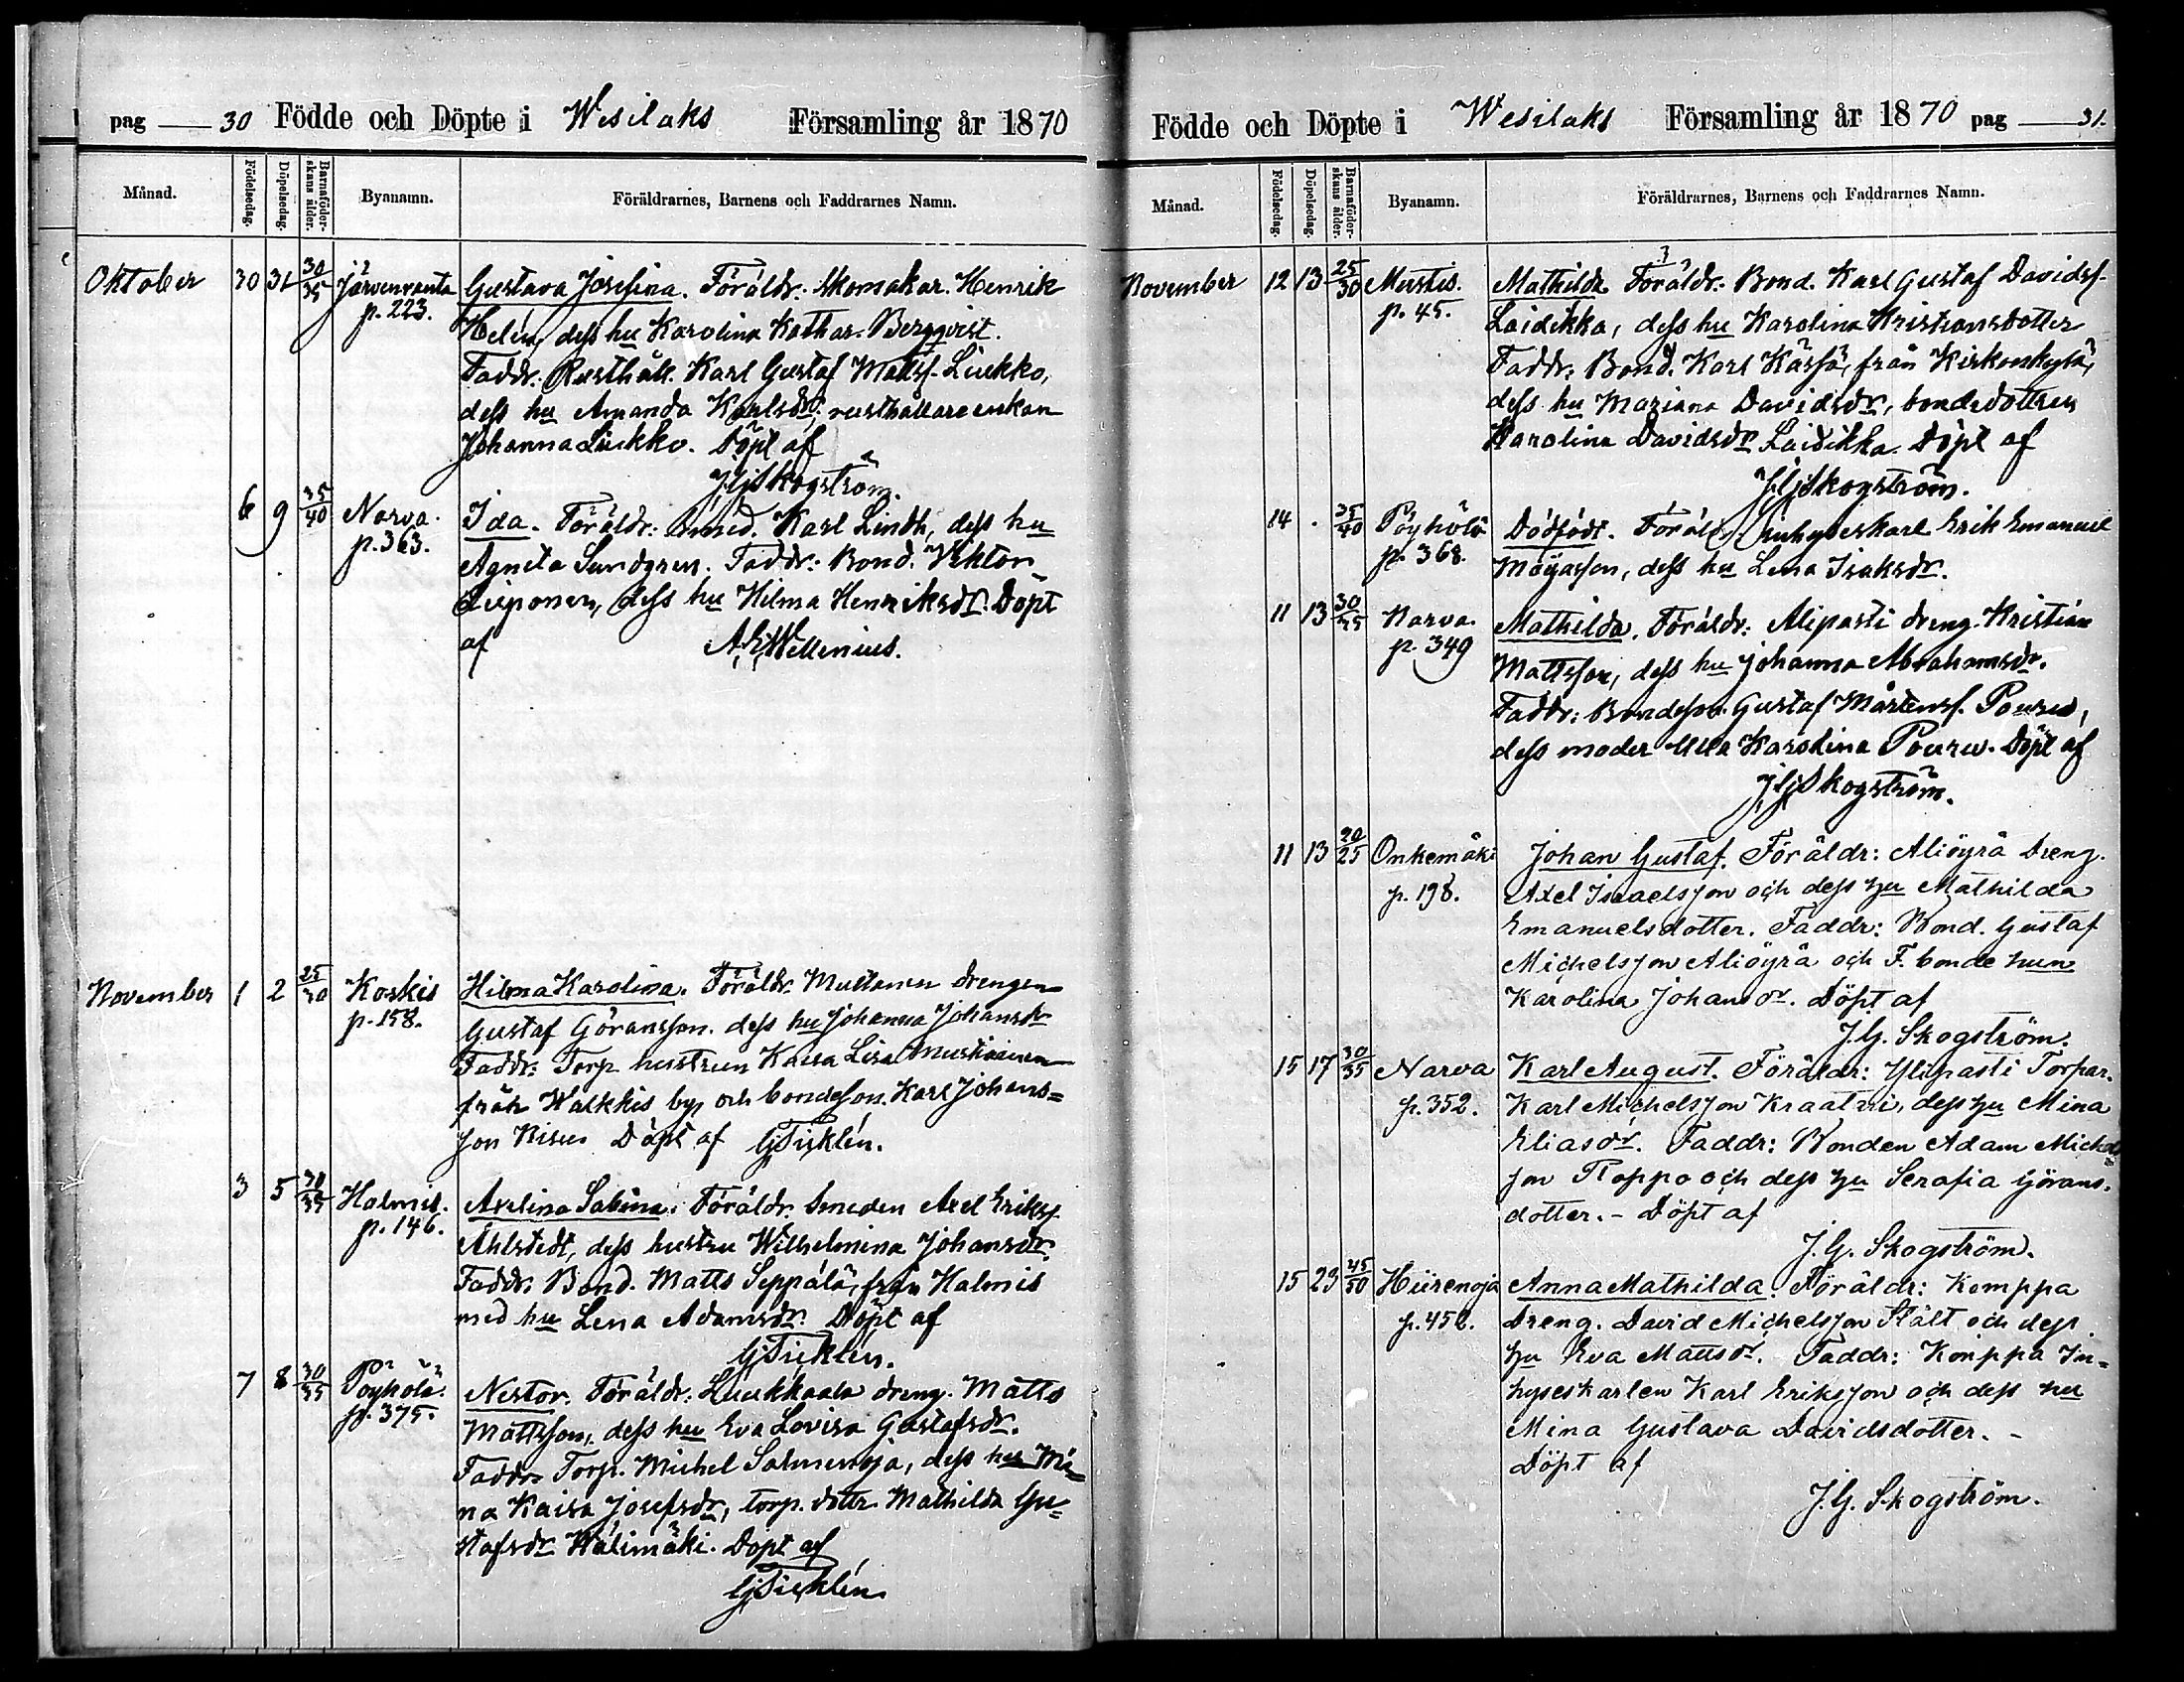 pag 30 Födde och Döpte i Wesilaks Församling år 1870
Månad. Födelsedag. Döpelsedag. Barnaföderskans ålder. Byanamn. Föräldrarnes, Barnens och Faddrarnes Namn.
Oktober 30 31 30/35 Järvenranta Gustava Josefina. Föräldr. Skomakar. Henrik
p. 223. Helén, dess hu Karolina Kathar. Bergqvist.
Faddr. Rusthåll. Karl Gustaf Mattss. Liukko,
dess hu Amanda Karlsdr. rusthållareenkan
Johanna Liukko. Döpt af
J.G. Skogström.
6 9 35/40 Narva. Ida. Föräldr: Smed. Karl Lindh, dess hu
p. 363. Agneta Sundgren. Faddr: Bond. Viktor
dess hu Hilma Henriksdr. Döpt
af A.E. Wellenius.
November 1 2 25/30 Koskis Hilma Karolina. Föräldr. drengen
p. 158. Gustaf Göransson. dess hu Johanna Johansdr
Faddr: Torp. hustrun Kaisa Lisa
från Walkkis by och bondeson. Karl Johans=
son Döpt af G. Ticklén.
3 5 30/35 Halmis. Axelina Sabina. Föräldr. Smeden Axel Erikss.
p. 146. Ahlstedt, dess hustru Wilhelmina Johansdr.
Faddr. Bond. Matts Seppälä, från Halmis
med hu Lena Adamsdr. Döpt af
G. Ticklén.
7 8 30/35 Pöyhölä. Nestor. Föräldr. Luukkaala dreng. Matts
p. 375. Mattsson, dess hu Eva Lovisa Gustafsdr.
Faddr. Torp. Michel Salmenoja, dess hu Mi=
na Kaisa Josefsdr, torp. dottr. Mathilda Gu=
stafsdr Wälimäki. Döpt af
G. Ticklén
Födde och Döpte i Wesilaks Församling år 1870 pag 31.
Månad. Födelsedag. Döpelsedag. Barnaföderskans ålder. Byanamn. Föräldrarnes, Barnens och Faddrarnes Namn.
November 12 13 25/30 Mustis. Mathilda. Föräldr. Bond. Karl Gustaf Davidss.
p. 45. Laidikka, dess hu Karolina Kristiansdotter
Faddr. Bond. Karl från Kirkonkylä,
dess hu Mariana Davidsdr, bondedottren
Karolina Davidsdr Laidikka. Döpt af
J.G. Skogström.
14 . 35/40 Pöyhölä Dödfödt. Föräldr. Inhyseskarl Erik Emanuel
p. 368. dess hu Lena Isaksdr.
11 13 30/35 Narva. Mathilda. Föräldr: Alipasti dreng. Kristian
p. 349 Mattsson, dess hu Johanna Abrahamsdr.
Faddr: Bondeson. Gustaf Mårtenss. Pouru,
dess moder Ulla Karolina Pouru. Döpt af
J.G. Skogström.
11 13 20/25 Onkemäki Johan Gustaf. Föräldr: Aliöyrä Dreng.
p. 198. Axel Israelsson och dess hu Mathilda
Emanuelsdotter. Faddr: Bond. Gustaf
Michelsson Aliöyrä och F. bonde hun
Karolina Johansdr. Döpt af
J.G. Skogström.
15 17 30/35 Narva Karl August. Föräldr: Ylipasti Torpar.
p. 352. Karl Michelsson Kraatari, dess hu Mina
Eliasdr. Faddr: Bonden Adam Michel
son Roppo och dess hu Serafia Görans.
dotter. - Döpt af
J.G. Skogström.
15 23 45/50 Hiirenoja Anna Mathilda. Föräldr: Komppa
p. 452. Dreng. David Michelsson Stålt och dess
hu Eva Mattsdr. Faddr: Komppa In=
hyseskarlen Karl Eriksson och dess hu
Mina Gustava Davidsdotter. -
Döpt af
J.G. Skogström.